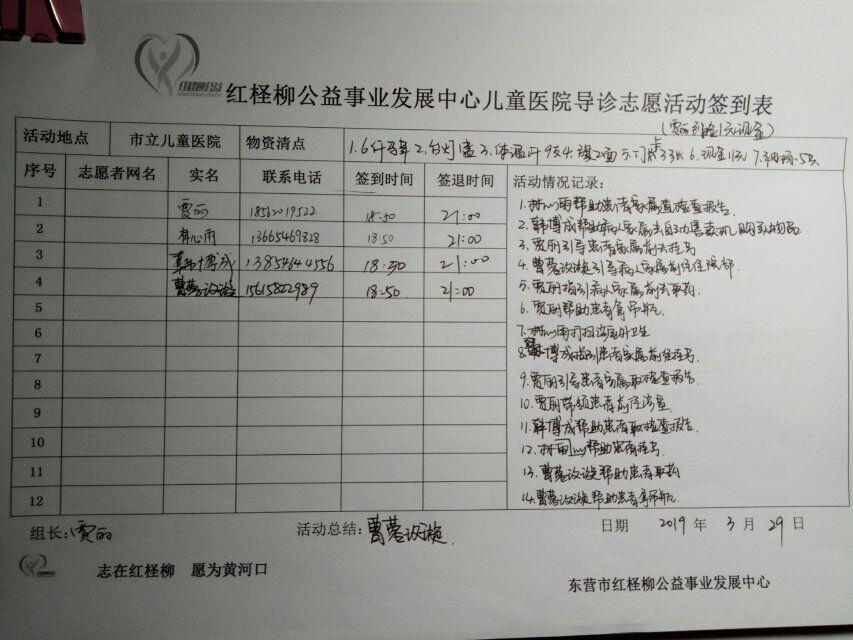 红柽柳公益
红柽柳公益事业发展中心儿童医院导诊志愿活动签到表
活动地点 市立儿童医院 物资清点
序号 志愿者网名 实名 联系电话 签到时间 签退时间 活动情况记录:
1 贾丽 18562019522 18:50 21:00
2 心雨 13665469828 18:50 21:00
3 韩博成 13854644556 18:30 21:00
4 曹蓉 15615822989 18:50 21:00
5
6
7
8
9
10
11
12
1.林心雨帮助患者家属查检查报告.
2.韩博成帮助病人家属去自动售卖机购买物品
3.贾丽引导患者家属前去挂号
4.曹蓉 引导病人家属前往住院部
5.贾丽指引病人家属前去取药
6.贾丽帮助患者拿吊瓶.
7.林心雨打扫 卫生
8.韩博成指引患者家属前往挂号.
9.贾丽引导患者家属取检查报告.
10.贾丽带领患者前往诊室
11.韩博成帮助患者取检查报告.
12.林雨心帮助患者挂号.
13.曹蓉 帮助患者取药
14.曹蓉 帮助患者拿吊瓶
组长:贾丽 活动总结:曹蓉 日期 2019 年 3 月 29 日
志在红柽柳 愿为黄河口
东营市红柽柳公益事业发展中心